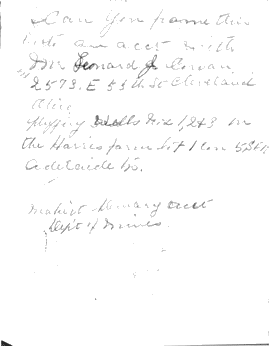 Can you frame this
an acct with
Mr Leonard J Cowan
2573. E 55th St Cleveland
Ohio
plugging Wells No 1, 2 & 3 on
the Harris farm lot 1 Con
Adelaide Tp.
acct
Dept of Mines.